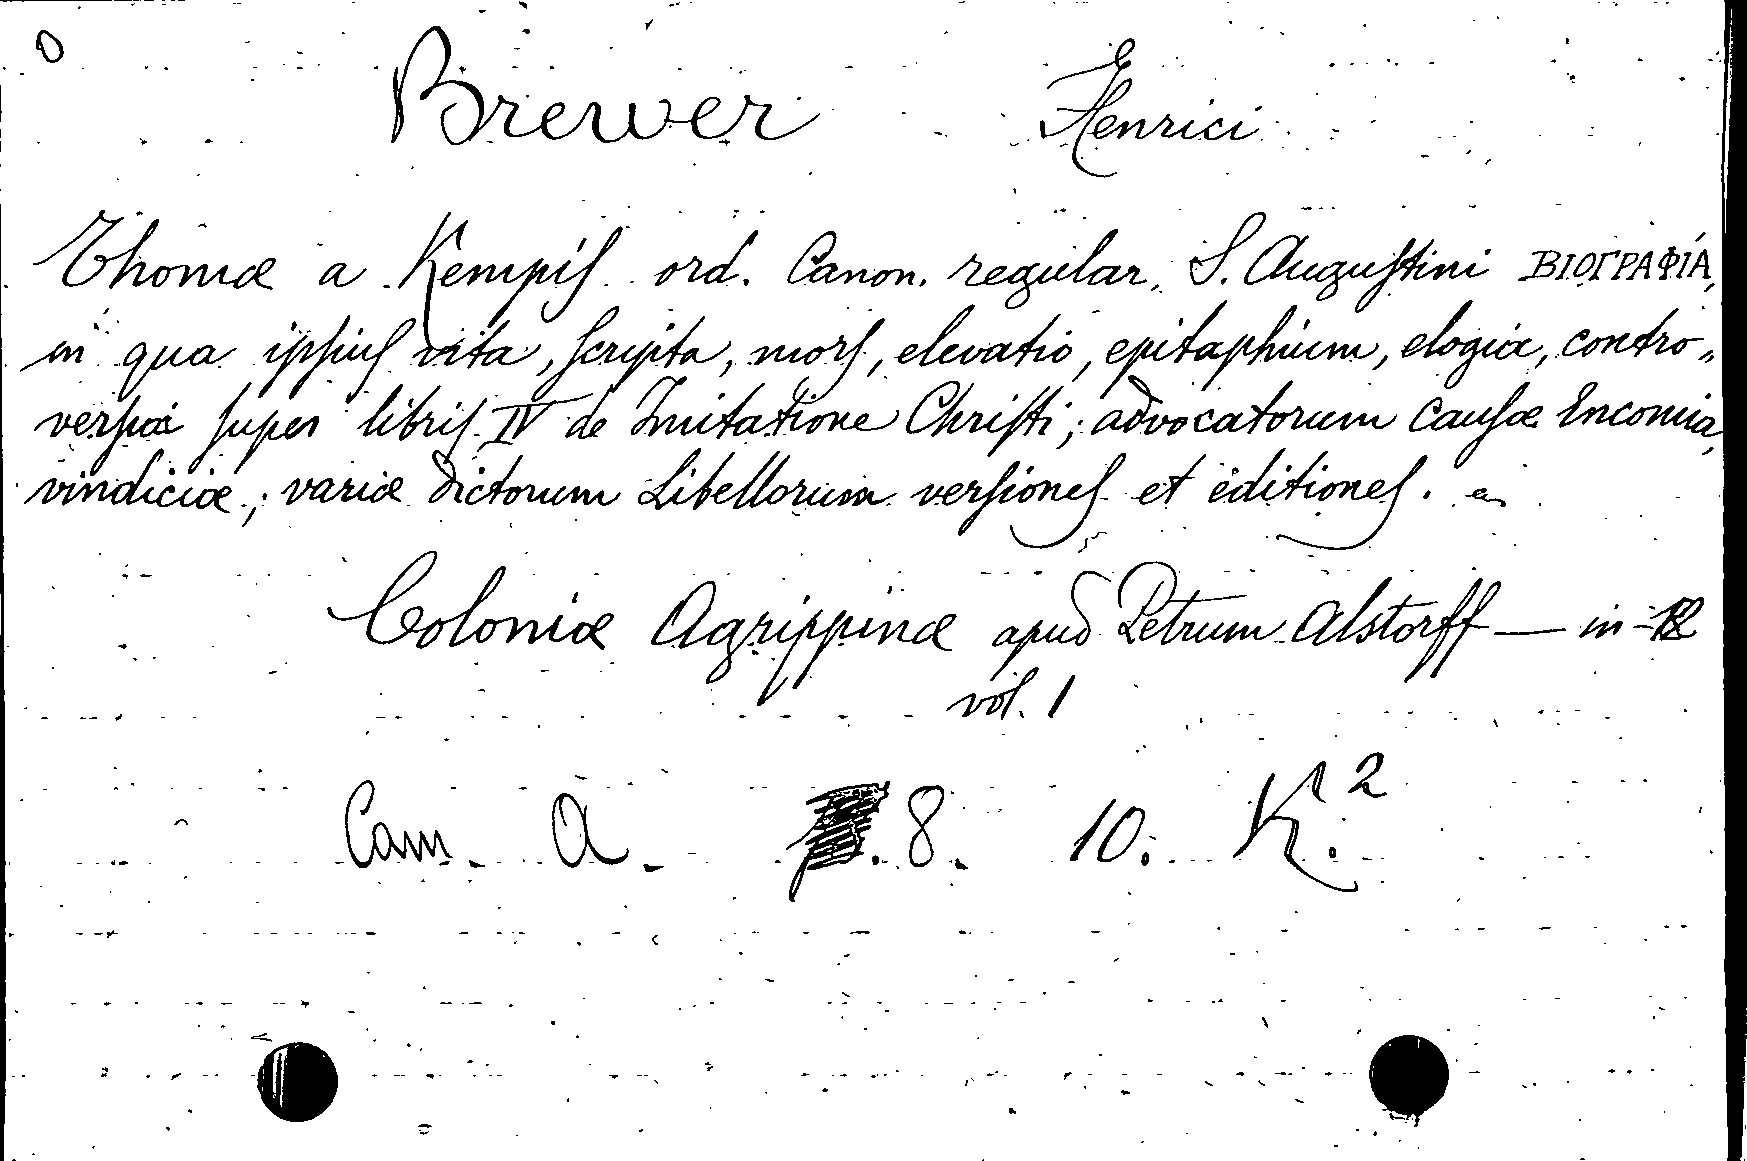 O
Brewer Henrici
Thomæ a Kempis ord. Canon. regular. S. Augustini ΒΙΟΓΡΑΦίΑ,
in qua ipsius vita, scripta, mors, elevatio, epitaphium, elogia, contro„
versiæ super libris IV de Imitatione Christi; advocatorum causæ Encomia,
vindiciæ; variæ dictorum Libellorum versiones et editiones.
Coloniæ Agrippinæ apud Petrum Alstorff — in-12
vol. 1
Cam. A. 8. 10. K.²